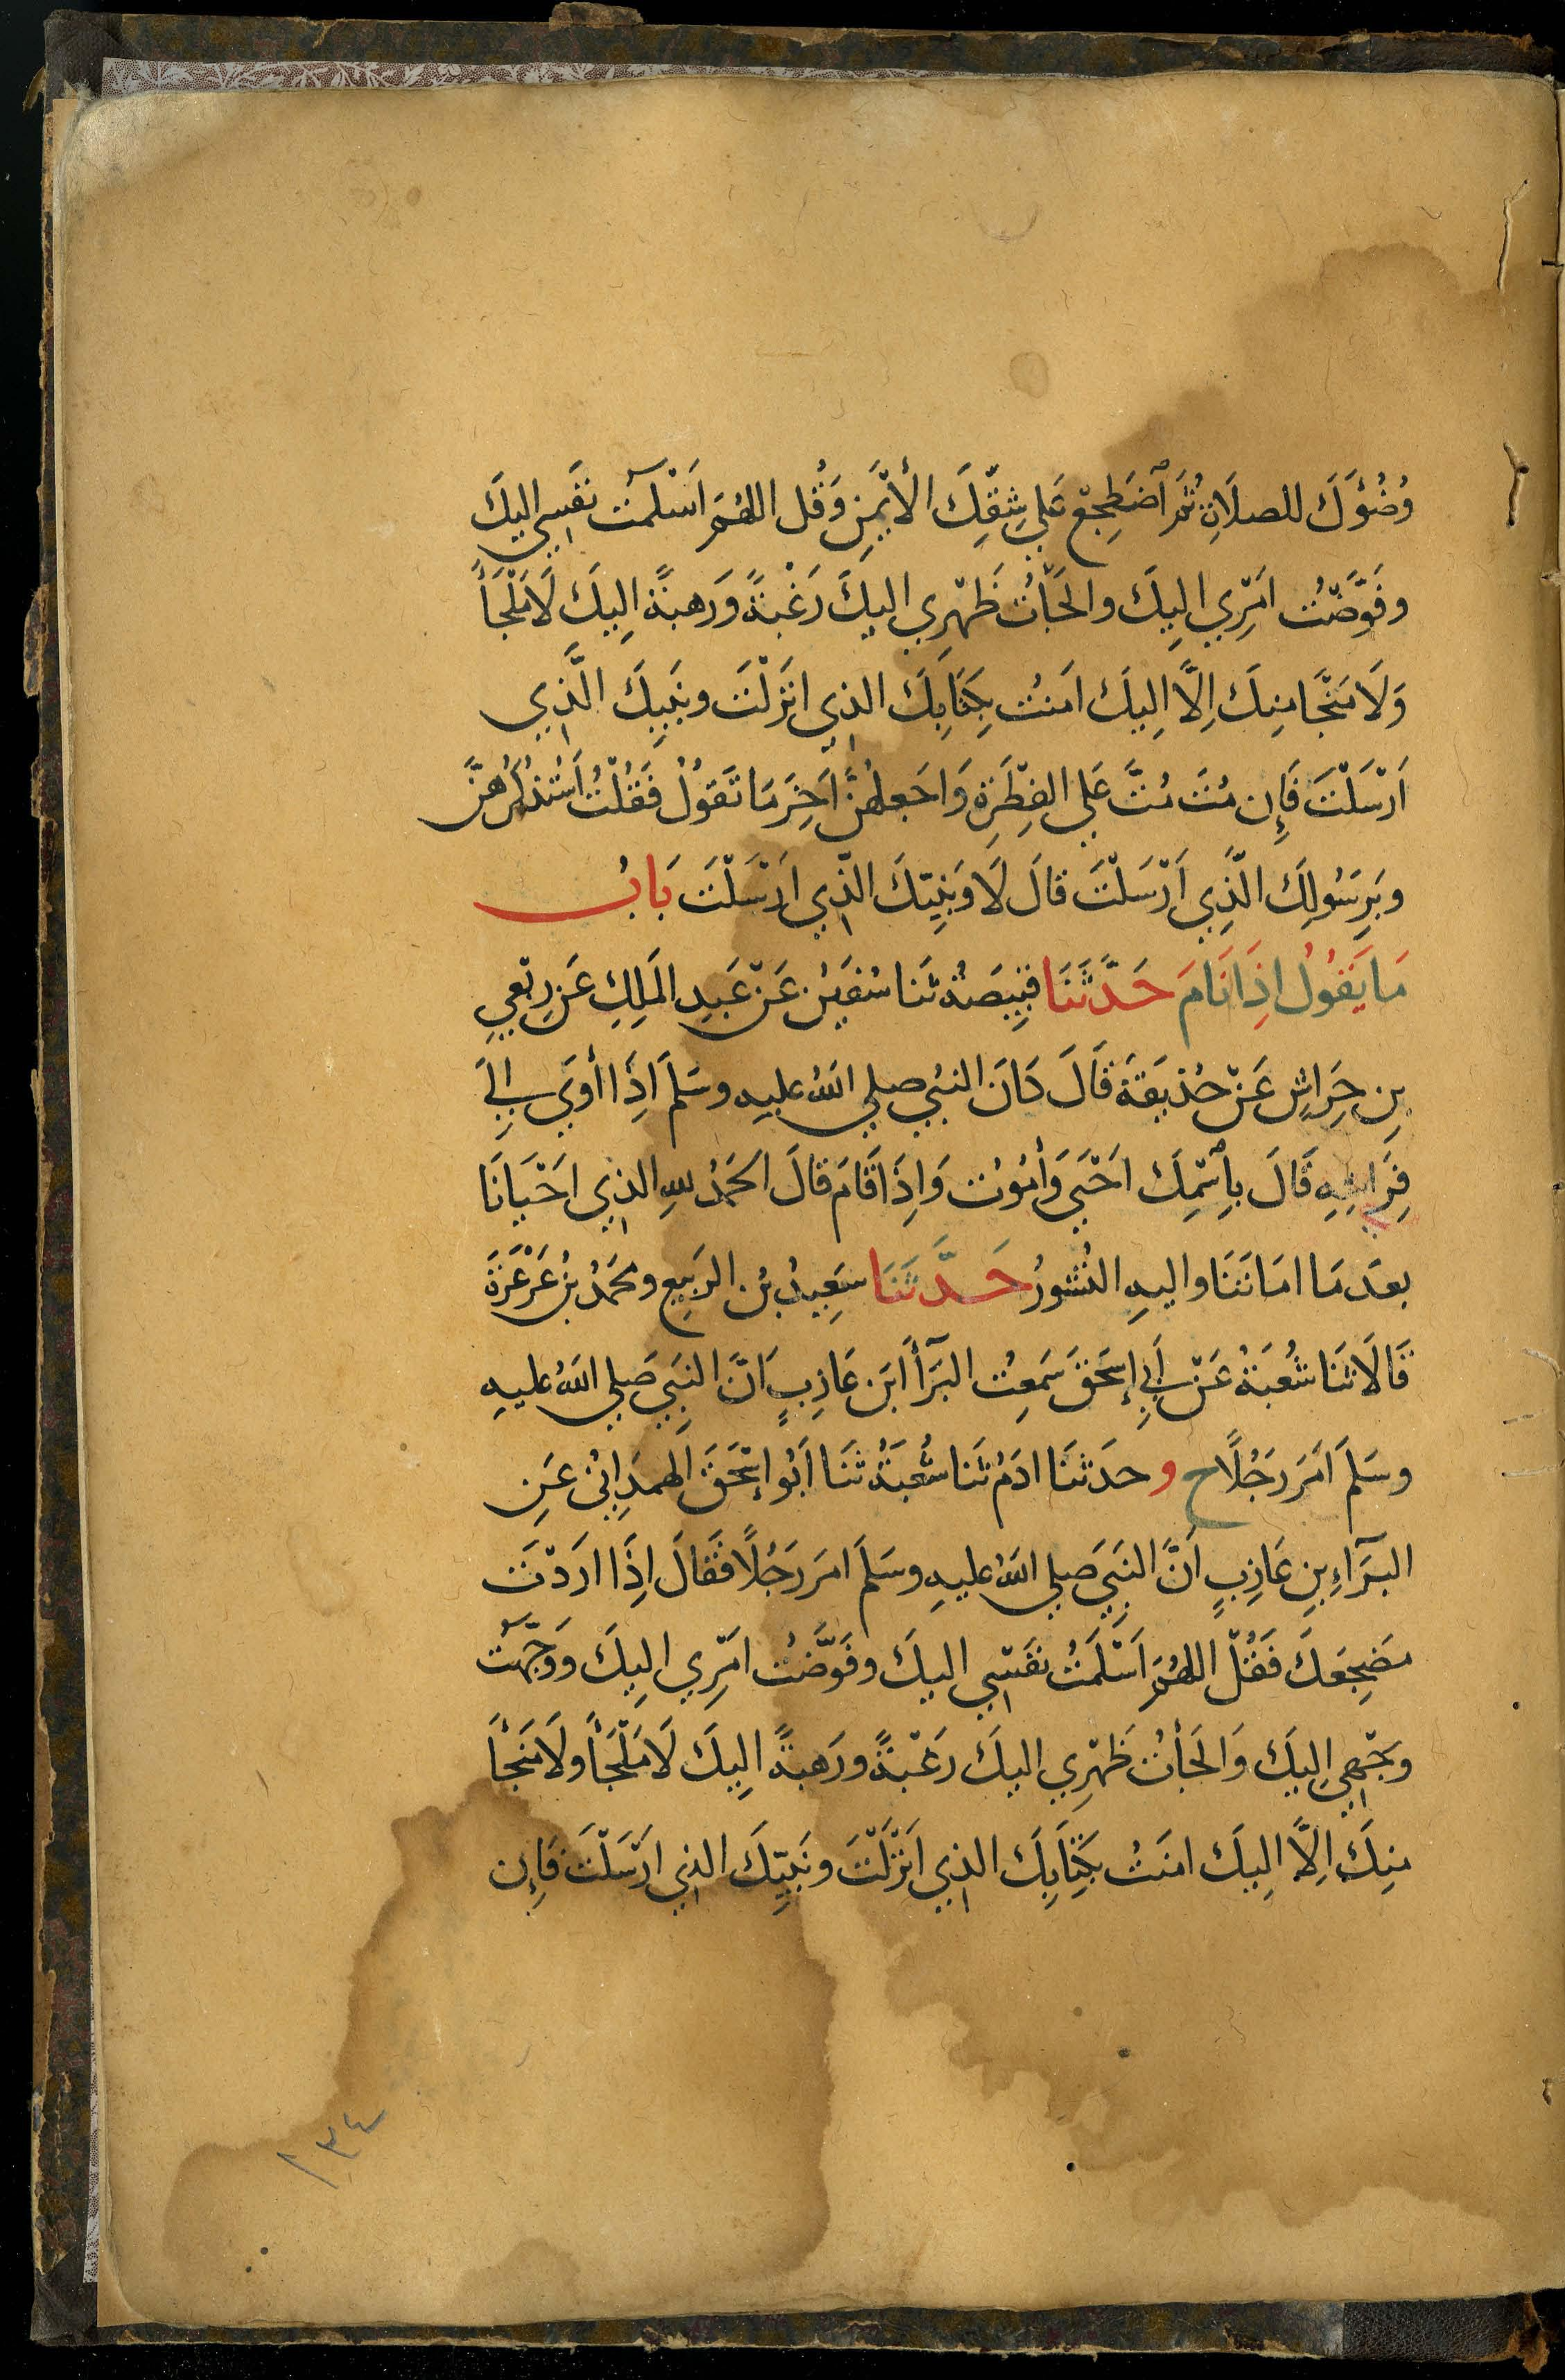 وُضُوءَكَ للصلَاةِ ثُمَّ ٱضْطَجِعْ عَلي شِقِّكَ الأَيْمَنِ وَقُل اللهُمَّ اَسْلَمْت نفَسِي اليكَ
وفَوَّضْتُ امَرْي اِليكَ والجَأْتُ ظَهْرِي اليكَ رَغْبَةً وَرَهبَةً اِليكَ لَا مَلْجَأَ
وَلَا مَنْجَا مِنكَ اِلَّا اِليكَ امَنتُ بِكِتَابِكَ الذِي انَزَلْتَ وبنَبِيكَ الَّذِي
اَرْسَلْتَ فَإِن مُتَ مُتَّ عَلي الفِطْرَةِ وَاجَعلهُنَّ اَخِرَ مَا تَقوُلُ فَقُلْتُ اَسْتَذْكِرُهُنَّ
وبَرِسَوُلِكَ الَّذِي اَرْسَلْتَ قالَ لَا وَبِنَبِيّكَ الّذِي اَرْسَلْتَ بَابُ
مَا يَقُولُ اذِاَ نَامَ حَدَّثَنَا قَبِيصَةُ ثَنا سُفيَنُ عَنْ عَبدِ المَلِكِ عَن رِبْعِيِ
بِن حِرَاشٍ عَنْ حُذيفَةَ قَالَ كَانَ النبُي صلي اللهُ عليهِ وسَلمَ اذِاَ أَوَي اِليَ
فِرَاشِهِ قَالَ بِاسْمِكَ احَيْىَ وَأمُوُت وَاِذَا قَامَ قالَ الحَمدُ للهِ الذِي احَيْانَا
بعدَ مَا امَاتَنَا واليهِ النُشورُ حَدَّثَنَا سَعِيدُ بنُ الرَبيِعِ ومحَمدُ بنُ عَرْعَرَةَ
قَالَا ثنَا شُعبَةُ عَنْ اَبِي إِسحَقَ سَمَعِتُ البَرَآَ ابنَ عَازِبٍ اَنَّ النبَيِ صَلي اللهُ عليهِ
وسَلمَ اَمَرَ رَجُلًا ح وحدَثنَا ادَمُ ثَنا شُعْبَةُ ثَنَا اَبُو إِسْحَقَ الهمدَانِيُ عَنِ
البَرَآءِ بنِ عَازِبٍ اَنَّ النبَيِ صَلي اللهُ عليهِ وسَلمَ امَرَ رَجُلًا فَقَالَ اِذَا ارَدْتَ
مضَجِعَكَ فَقُلْ اللهُمَّ اَسْلَمْتُ نفَسْي اليكَ وفَوَّضْتُ امَرْي اِليكَ ووَجَّهْت
وجَهْي اِليكَ وَالجَأْتُ ظَهْرِي اليكَ رَغْبَةً ورَهبَةً اِليكَ لَا مَلْجَأَ ولَا مَنجَأَ
مِنكَ اِلَّا اِليكَ امَنتُ بكِتَابِكَ الذِي اَنْزَلْتَ ونَبِيّكَ الذِي اَرْسَلْتَ فَإِن
١٣٤